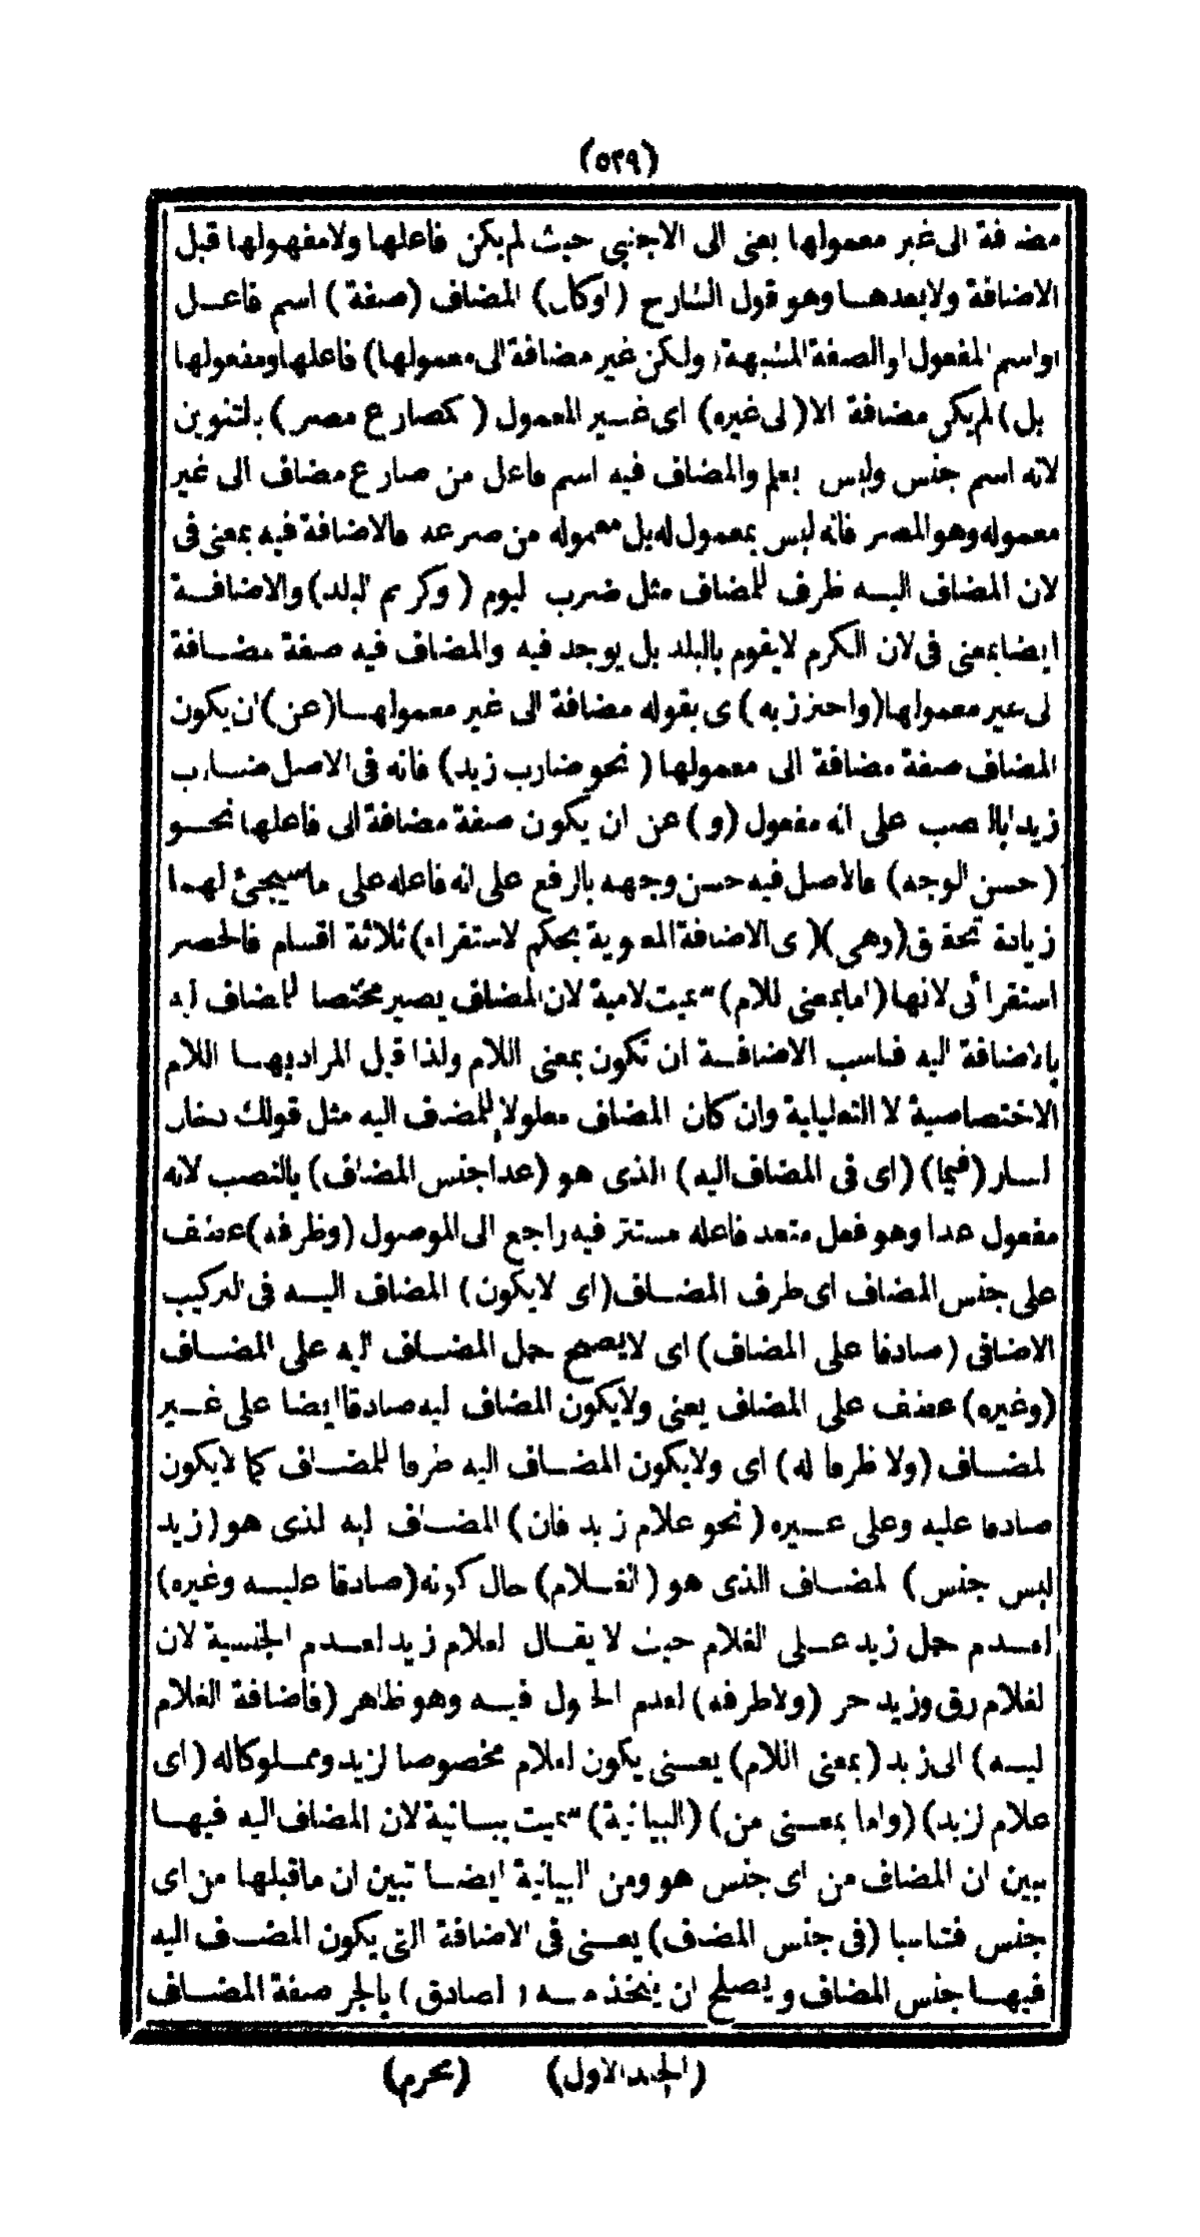 (٥٢٩)
مضافة الى غير معمولها يعنى الى الاجنبى حيث لم يكن فاعلها ولا مفعولها قبل
الاضافة ولا بعدها وهو قول الشارح (اوكان) المضاف (صفة) اسم فاعل
او اسم المفعول او الصفة المشبهة (ولكن غير مضافة الى معمولها) فاعلها ومفعولها
بل) لم يكن مضافة الا (لى غيره) اى غير المعمول (كصارع مصر) بالتنوين
لانه اسم جنس وليس بعلم والمضاف فيه اسم فاعل من صارع مضاف الى غير
معموله وهو المصر فانه ليس بمعمول له بل معموله من صرعه فالاضافة فيه بمعنى فى
لان المضاف اليه ظرف للمضاف مثل ضرب اليوم (وكريم البلد) والاضافة
ايضا بمعنى فى لان الكرم لا يقوم بالبلد بل يوجد فيه والمضاف فيه صفة مضافة
لى غير معمولها (واحترز به) ى بقوله مضافة الى غير معمولها (عن) ان يكون
المضاف صفة مضافة الى معمولها (نحو ضارب زيد) فانه فى الاصل ضارب
زيدا بالنصب على انه مفعول (و) عن ان يكون صفة مضافة الى فاعلها نحو
(حسن الوجه) فالاصل فيه حسن وجهه بالرفع على انه فاعله على ما سيجئ لهما
زيادة تحقق (وهى) (ى الاضافة المعنوية بحكم لاستقراء) ثلاثة اقسام فالحصر
استقرائى لانها (اما بمعنى للام) سميت لامية لان المضاف يصير مختصا للمضاف اليه
بالاضافة اليه فناسب الاضافة ان تكون بمعنى اللام ولذا قيل المراد بها اللام
الاختصاصية لا التعليلية وان كان المضاف معلولا للمضاف اليه مثل قولك دخان
لنار (فيما) (اى فى المضاف اليه) الذى هو (عدا جنس المضاف) بالنصب لانه
مفعول عدا وهو فعل متعد فاعله مستتر فيه راجع الى الموصول (وظرفه) عطف
على جنس المضاف اى ظرف المضاف (اى لا يكون) المضاف اليه فى التركيب
الاضافى (صادقا على المضاف) اى لا يصح حمل المضاف اليه على المضاف
(وغيره) عطف على المضاف يعنى ولا يكون المضاف ليه صادقا ايضا على غير
لمضاف (ولا ظرفا له) اى ولا يكون المضاف اليه ظرفا للمضاف كما لا يكون
صادقا عليه وعلى غيره (نحو غلام زيد فان) المضاف ليه لذى هو (زيد
ليس جنس) لمضاف الذى هو (الغلام) حال كونه (صادقا عليه وغيره)
لعدم حمل زيد على الغلام حيث لا يقال لغلام زيد لعدم الجنسية لان
لغلام رق وزيد حر (ولا ظرفه) لعدم الحلول فيه وهو ظاهر (فاضافة الغلام
ليه) الى زيد (بمعنى اللام) يعنى يكون لغلام مخصوصا لزيد ومملوكا له (اى
غلام لزيد) (واما بمعنى من) (البيانية) سميت بيانية لان المضاف اليه فيها
يبين ان المضاف من اى جنس هو ومن البيانية ايضا تبين ان ما قبلها من اى
جنس فتناسبا (فى جنس المضاف) يعنى فى الاضافة التى يكون المضاف اليه
فيها جنس المضاف ويصلح ان يتخذ منه (لصادق) بالجر صفة المضاف
(الجلد الاول) (محرم)